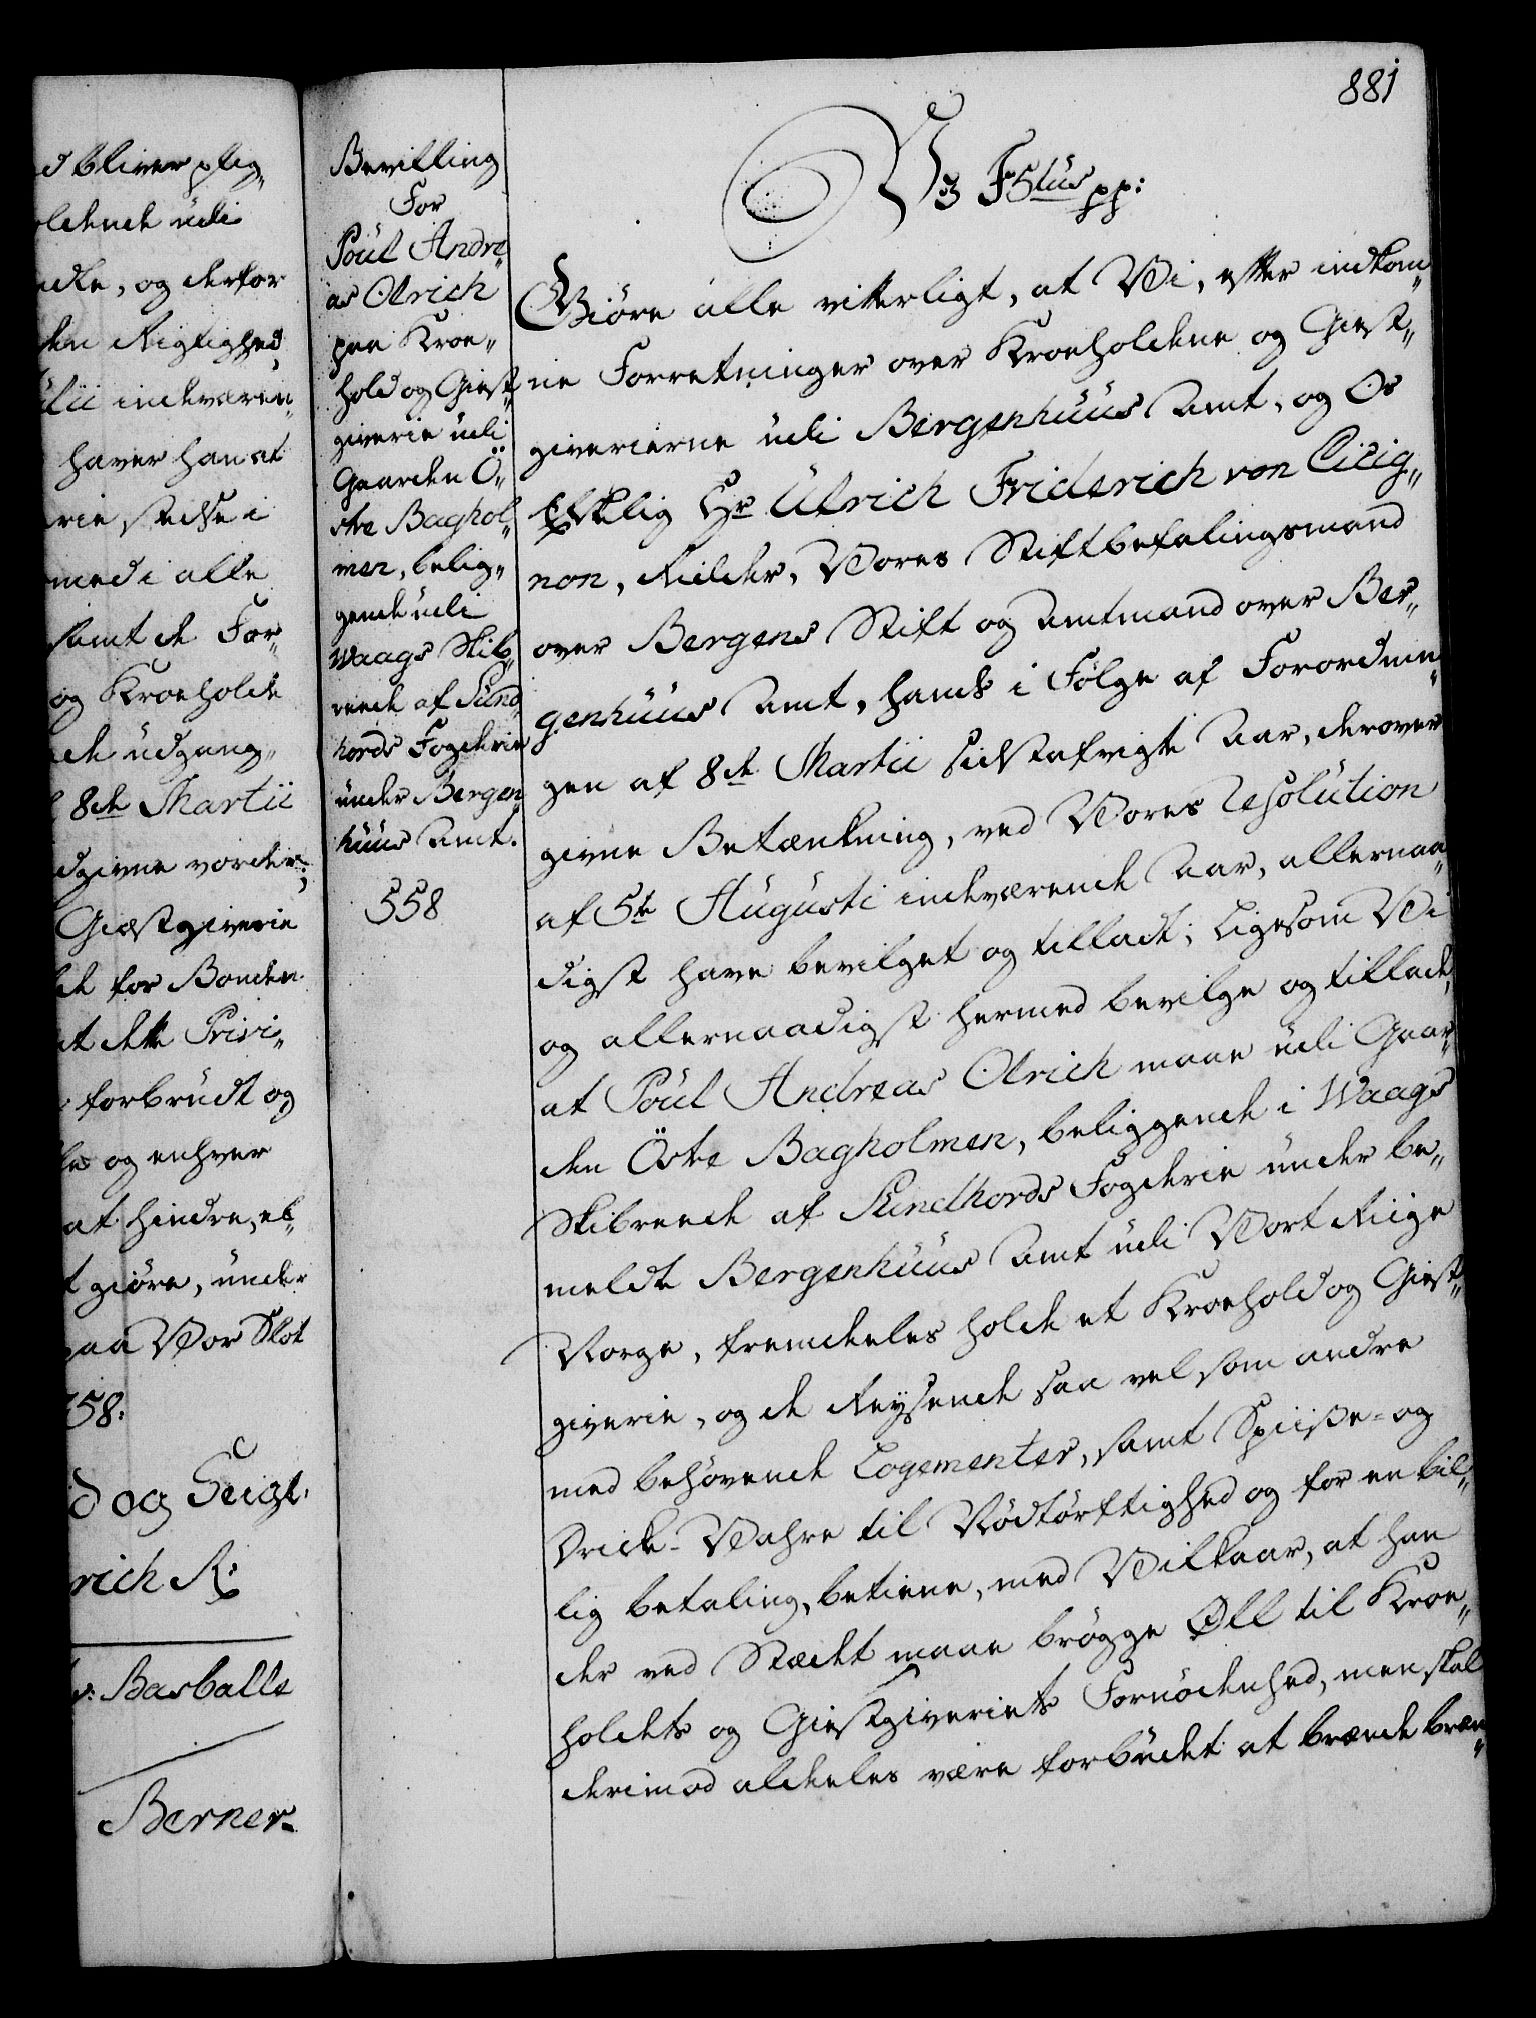 881
d bliver plig„
oldende udi
ndte, og derfor
den Rigtighed,
rtii indeværen„
haver han at
rie stedse i
med i alle
samt de For„
og Kroeholde
de udgang„
8de Martii
dgivne vorder;
Giæstgiverie
de for Bonden
at dette Privi„
forbrudt og
og enhver
at hindre, el„
t giøre, under
paa Vor Slot
758:
d og Seigl.
rich R:
v: Barballe
Berner.
Bevilling
For
Poül Andre„
as Olrich
paa Kroe„
hold og Giest„
giverie udi
Gaarden Ö„
stre Baghol„
men, belig„
gende udi
Waags Skib„
rede af Sünd„
hords Fogderie
under Bergen„
huus Amt.
558
V3 F5tus pp:
Giöre alle vitterligt, at Vi, efter indkom„
ne Forretninger over Kroeholdene og Giest„
giverierne udi Bergenhuus Amt, og Os
Elskelig Hr Ulrich Friderich von Cicig„
non, Ridder, Vores Stiftbefalingsmand
over Bergens Stift og Amtmand over Ber„
genhuus Amt, hands i Fölge af Forordnin„
gen af 8de Martii sidstafvigte Aar, derover
givne Betænkning, ved Vores Resolution
af 5te Augusti indeværende Aar, allernaa„
digst have bevilget og tilladt; Ligesom Vi
og allernaadigst hermed bevilge og tillade,
at Poül Andreas Olrich maae udi Gaar„
den Östre Bagholmen, beliggende i Waags
Skibrende af Sündhords Fogderie under be„
meldte Bergenhuus Amt udi Vort Riige
Norge, fremdeles holde et Kroehold og Giest„
giverie, og de Reysende saa vel som andre
med behövende Logementer, samt Spiise- og
Dricke-Vahre til Nödtörftighed og for en bil„
lig betaling, betiene, med Vilkaar, at han
der ved Stædet maae brögge Øll til Kroe„
holdets og Giestgiveriets Fornödenhed, men skal
derimod aldeles være forbudet at brænde bræn„